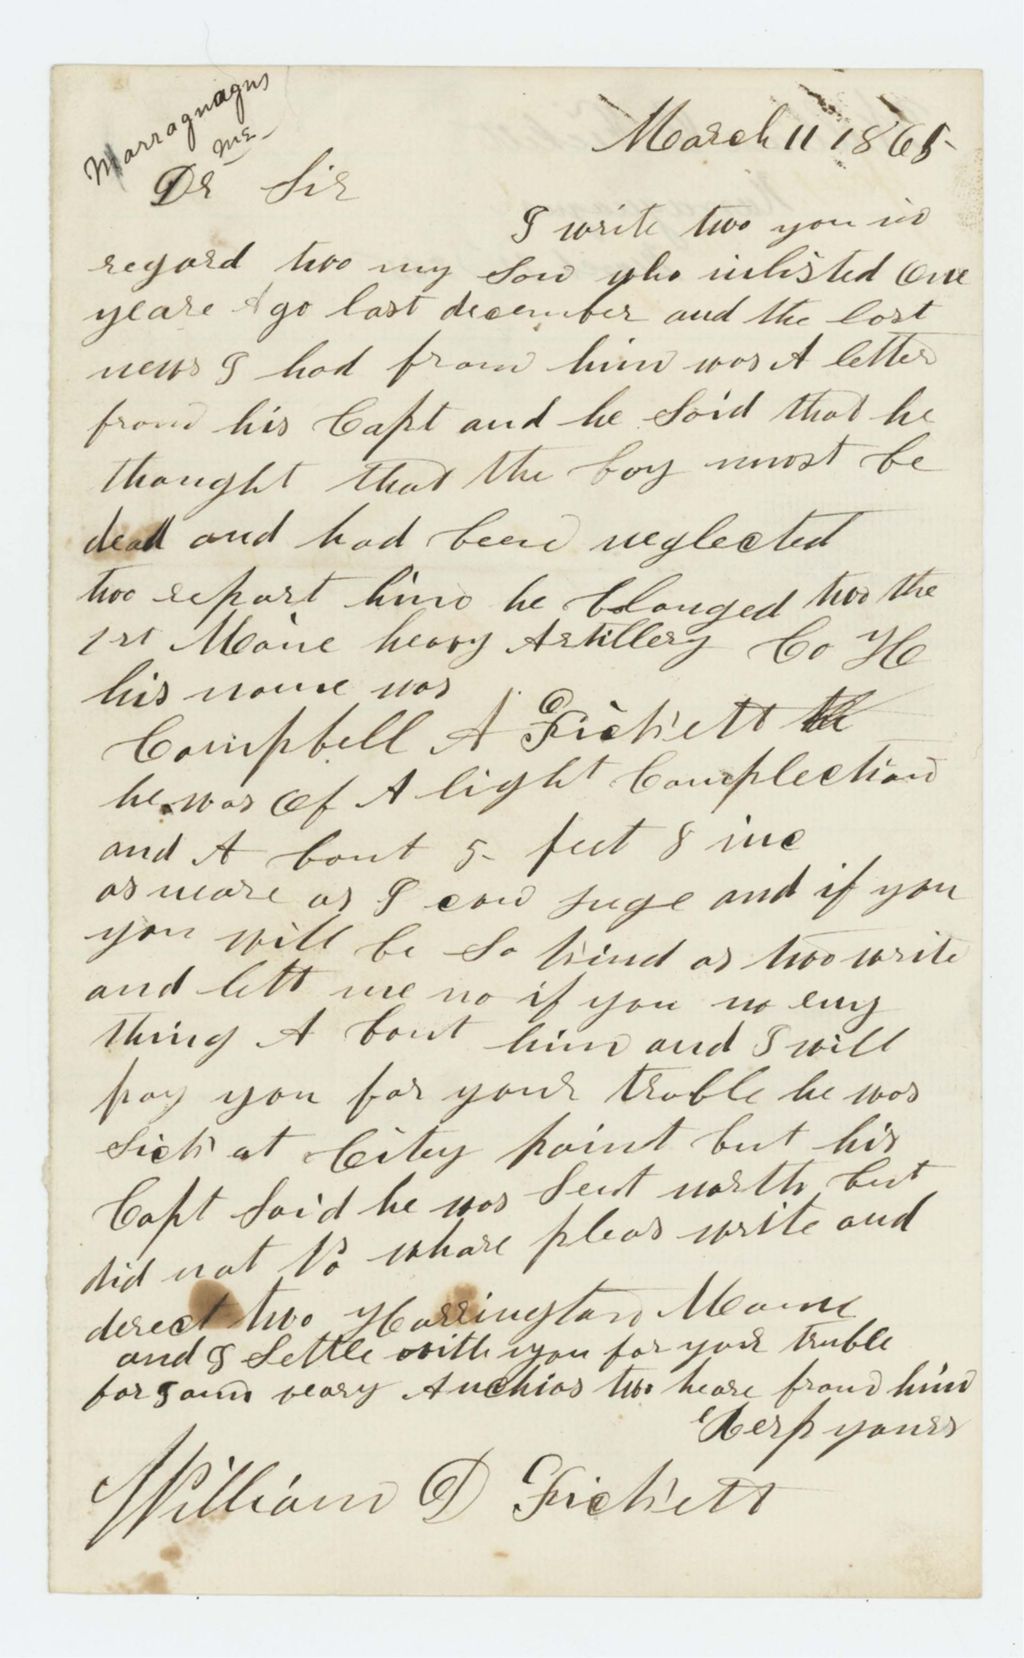 Marraguagus
Me-
March 11 1865-
Dr Sir
I write two you in
regard two my Son who inlisted One
yeare A go last december and the last
news I had from him was A letter
from his Capt and he Said that he
thought that the boy must be
dead and had been neglected
two report him he blonged two the
1st Maine heavy Artillery Co H
his name was
Campbell A Fickett
he was Of A light Complection
and A bout 5- feet 8 inc
as neare as I can juge and if you
you will be So kind as two write
and lett me no if you no eny
thing A bout him and I will
pay you for your truble he was
Sick at City point but his
Capt Said he was Sent north but
did not No whare pleas write and
derect two Harrington Maine
and I Settle with you for your truble
for I am veary Anchias two heare from him
Resp yours
William D Fickett